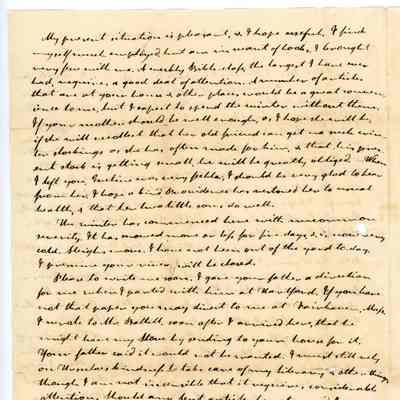 My present situation is pleasant, & I hope useful. I find
myself much employed, but am in want of books. I brought
very few with me. A weekly Bible class, the largest I have ever
had, requires a good deal of attention. A number of articles
that are at your house & other places, would be a great conven-
ience to me, but I expect to spend the winter without them.
If your mother should be well enough, as I hope she will be,
if she will recollect that her old friend can get no such win-
ter stockings as she has often made for him, & that his pres-
ent stock is getting small, he will be greatly obliged. When
I left you, was very feeble, I should be very glad to hear
from her, I hope a kind Providence has restored her to usual
health, & that her two little sons do well.
The winter has commenced here with uncommon
severity. It has snowed more or less for five days, & is now very
cold. Sleighs run. I have not been out of the yard to-day.
I presume your river will be closed.
Please to write me soon. I gave your father a direction
for me when I parted with him at Hartford. If you have
not that paper you may direct to me at Fairhaven, Mass.
I wrote to Mr. soon after I arrived here, that he
might have my Stove by sending to your house for it.
Your father said it would not be wanted. I must still rely
on kindness to take care of my library & other things
though I am not insensible that it requires considerable
attention. Should any